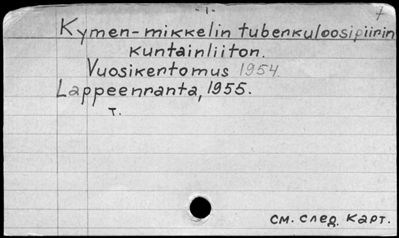 -1-
Kymen-mikkelin tuberkuloosipiirin
kuntainliiton.
Vuosikertomus 1954.
Lappeenranta, 1955.
т.
см. след. карт.